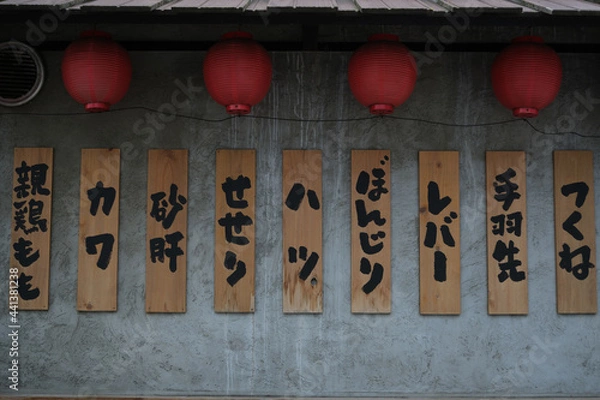 つくね
手羽先
レバー
ぼんじり
ハツ
せせり
砂肝
カワ
親鶏もも
Adobe Stock | #441381238